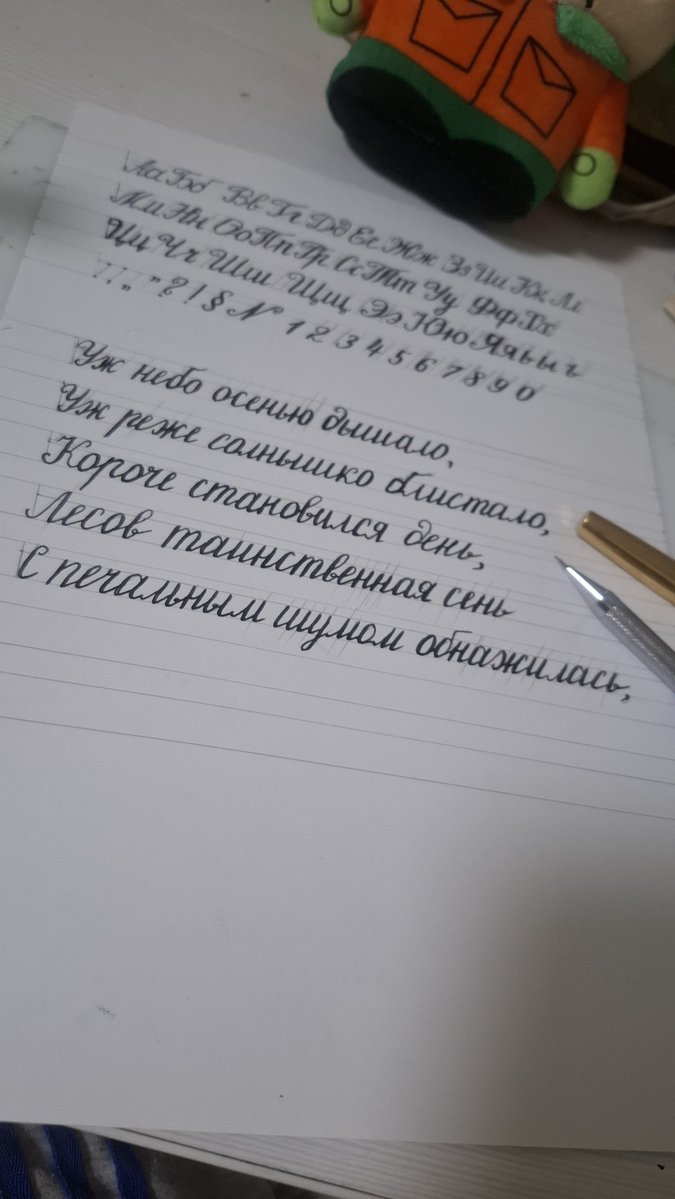 Аа Бб Вв Гг Дд Ее Жж Зз Ии Кк Лл
Мм Нн Оо Пп Рр Сс Тт Уу Фф Хх
Цц Чч Шш Щщ Ээ Юю Яя ь ы ч
? ! § № 1 2 3 4 5 6 7 8 9 0
Уж небо осенью дышало,
Уж реже солнышко блистало,
Короче становился день,
Лесов таинственная сень
С печальным шумом обнажилась,